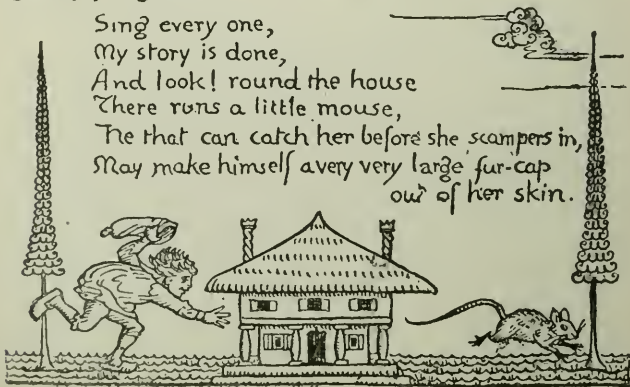 Sing every one,
My story is done,
And look! round the house
There runs a little mouse,
He that can catch her before she scampers in,
May make himself a very very large fur-cap
out of her skin.